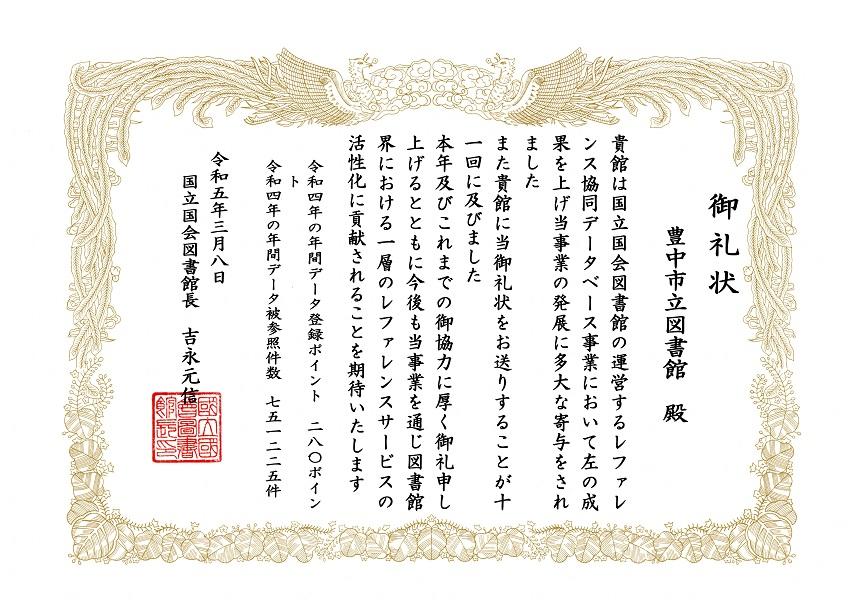 御礼状
豊中市立図書館　殿
貴館は国立国会図書館の運営するレファレ
ンス協同データベース事業において左の成
果を上げ当事業の発展に多大な寄与をされ
ました
また貴館に当御礼状をお送りすることが十
一回に及びました
本年及びこれまでの御協力に厚く御礼申し
上げるとともに今後も当事業を通じ図書館
界における一層のレファレンスサービスの
活性化に貢献されることを期待いたします
令和四年の年間データ登録ポイント　二八〇ポイン
ト
令和四年の年間データ被参照件数　七五一二二五件
令和五年三月八日
国立国会図書館長　吉永元信
國立國
會圖書
館長印